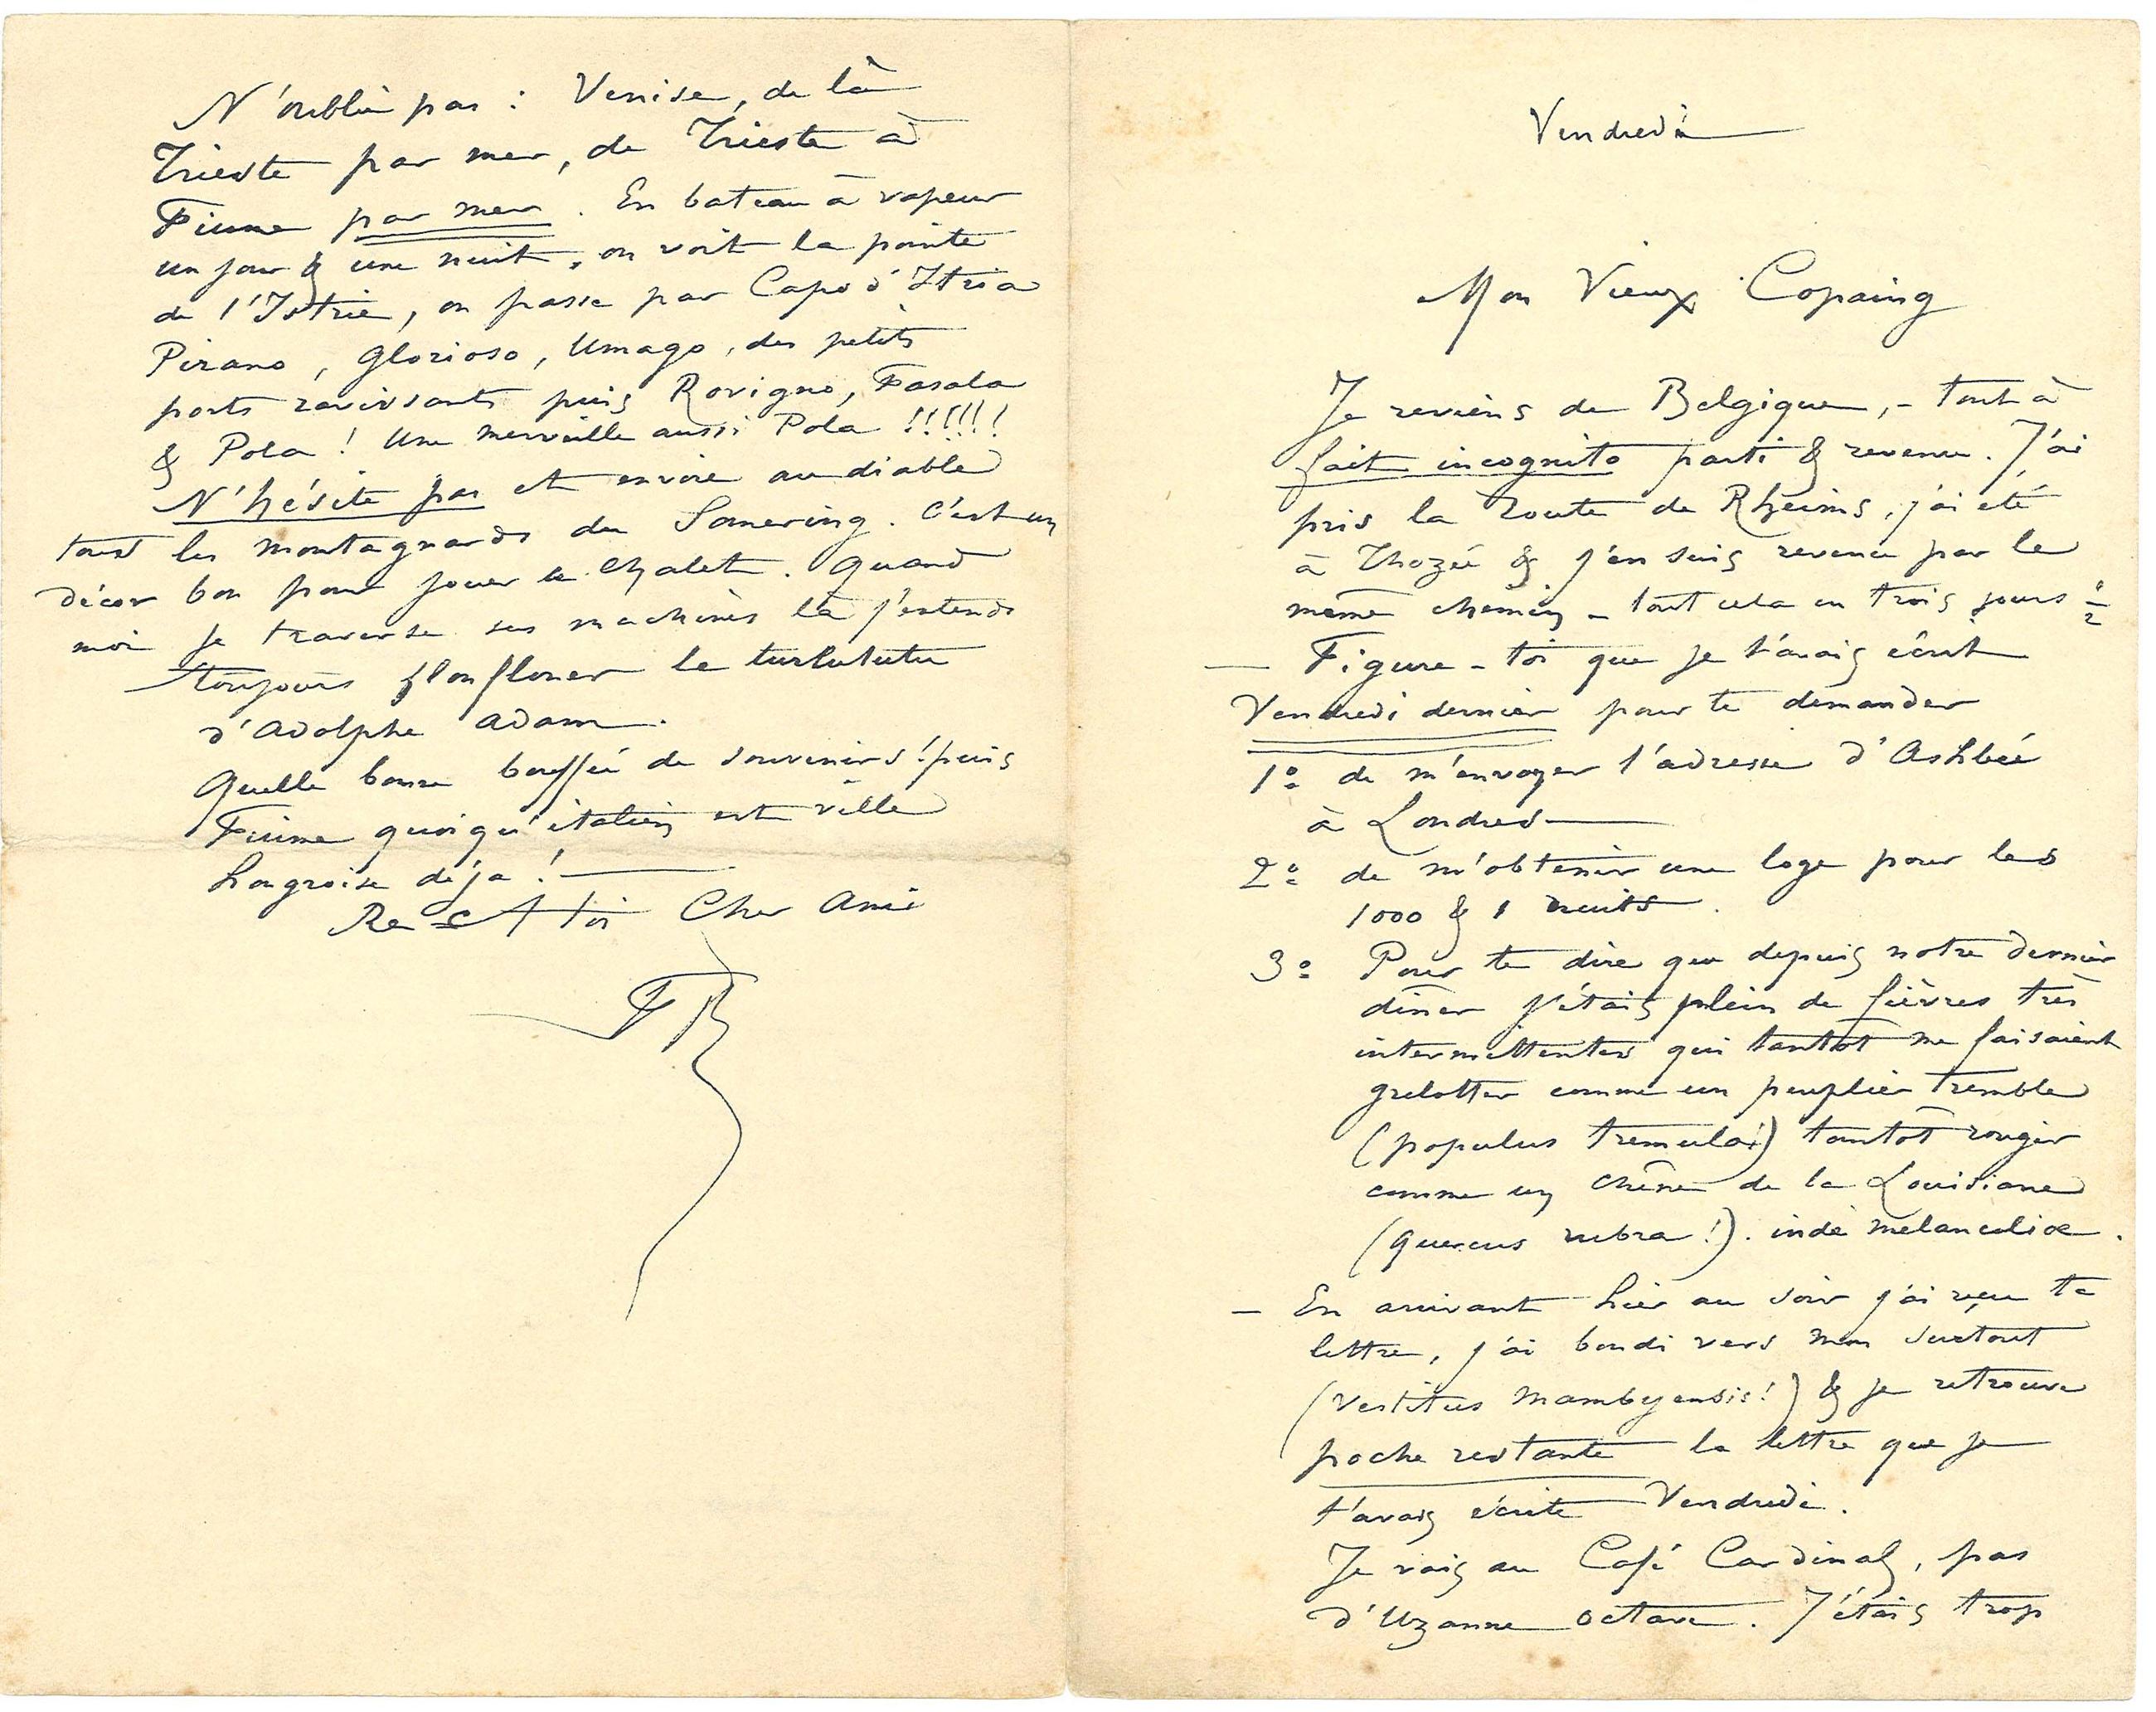 Vendredi
Mon Vieux Copaing
Je reviens de Belgique, - tout à
fait incognito parti & revenu. J'ai
pris la route de Rheims, j'ai été
à Thozée & j'en suis revenu par le
même chemin - tout cela en trois jours
— Figure-toi que je t'avais écrit
Vendredi dernier pour te demander
1º de m'envoyer l'adresse d'Ashbée
à Londres —
2º de m'obtenir une loge pour les
1000 & 1 nuits.
3º Pour te dire que depuis notre dernier
dîner j'étais plein de fièvres très
intermittentes qui tantôt me faisaient
grelotter comme un peuplier tremble
(populus tremula!) tantôt rougir
comme un chêne de la Louisiane
(quercus rubra!). inde melancoliæ.
— En arrivant hier au soir j'ai reçu ta
lettre, j'ai bondi vers mon surtout
(vestitus mambyensis!) & je retrouve
poche restante la lettre que je
t'avais écrite Vendredi.
Je vais au Café Cardinal, pas
d'Uzanne octave. J'étais trop
N'oublie pas : Venise, de là
Trieste par mer, de Trieste à
Fiume par mer. En bateau à vapeur
un jour & une nuit, on voit la pointe
de l'Istrie, on passe par Capo d'Istria
Pirano, Glorioso, Umago, des petits
ports ravissants puis Rovigno, Fasala
& Pola ! Une merveille aussi Pola !!!!!!
N'hésite pas et envoie au diable
tous les montagnards du Somering. C'est un
décor bon pour jouer le chalet. Quand
moi je traverse ces machines là j'entends
toujours flonfloner le turlututu
d'Adolphe Adam.
Quelle bonne bouffée de souvenirs ! puis
Fiume quoiqu'italien est ville
hongroise déjà ! —
Re à toi Cher Ami
FR